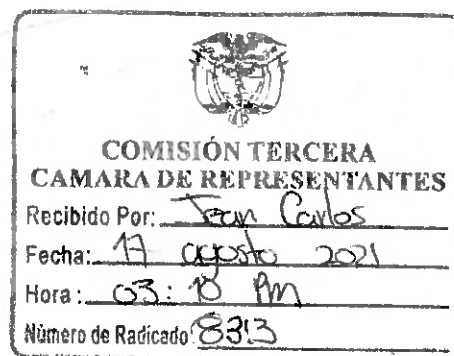 COMISIÓN TERCERA
CAMARA DE REPRESENTANTES
Recibido Por: Jean Carlos
Fecha: 17 agosto 2021
Hora: 03:10 Pm
Número de Radicado: 8313